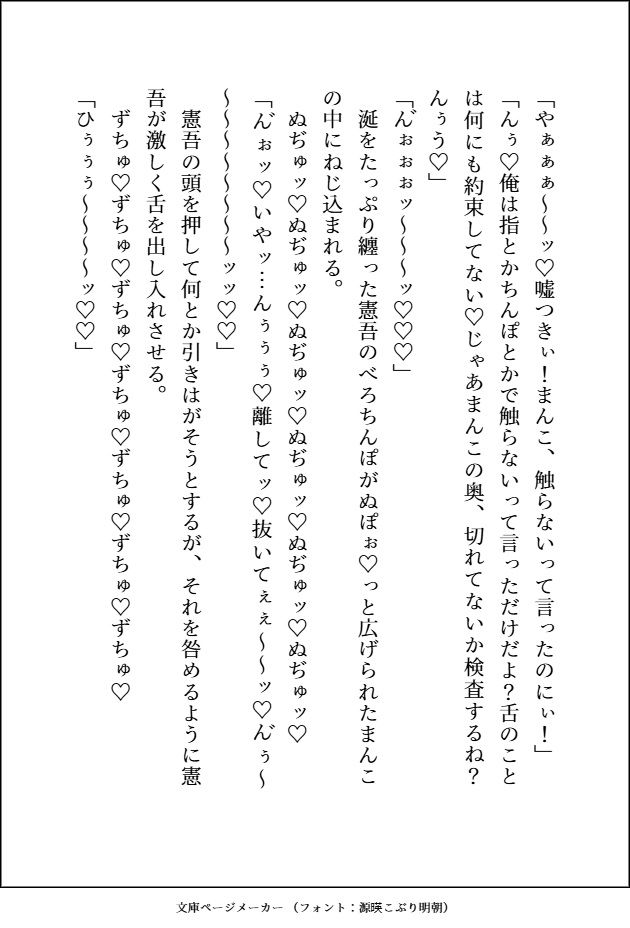 「やぁぁぁ～～ッ♡嘘つきぃ！まんこ、触らないって言ったのにぃ！」
「んぅ♡俺は指とかちんぽとかで触らないって言っただけだよ？舌のこと
は何にも約束してない♡じゃあまんこの奥、切れてないか検査するね？
んぅう♡」
「ん゛ぉぉぉッ～～～ッ♡♡♡」
　涎をたっぷり纏った憲吾のべろちんぽがぬぽぉ♡っと広げられたまんこ
の中にねじ込まれる。
　ぬぢゅッ♡ぬぢゅッ♡ぬぢゅッ♡ぬぢゅッ♡ぬぢゅッ♡ぬぢゅッ♡
「ん゛ぉッ♡いやッ…んぅぅぅ♡離してッ♡抜いてぇぇ～～ッ♡ん゛ぅ～
～～～～～～～～ッッ♡♡」
　憲吾の頭を押して何とか引きはがそうとするが、それを咎めるように憲
吾が激しく舌を出し入れさせる。
　ずちゅ♡ずちゅ♡ずちゅ♡ずちゅ♡ずちゅ♡ずちゅ♡ずちゅ♡
「ひぅぅぅ～～～～ッ♡♡」
文庫ページメーカー （フォント：源暎こぶり明朝）